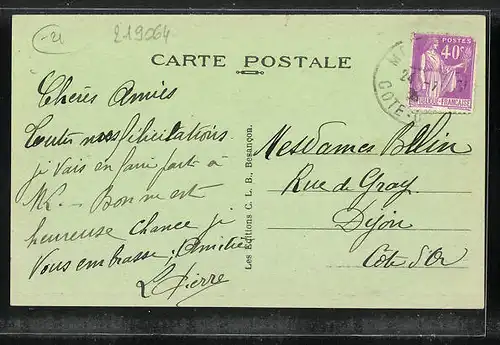 -21
219064
CARTE POSTALE
POSTES
40c
FRANÇAISE
COTE-D
24
Chères Amies
Toutes nos félicitations
je vais en faire part à
M. — Bonne et
heureuse chance je
vous embrasse, Amitiés
Pierre
Les Editions C. L. B., Besançon.
Mesdames
Rue de Gray
Dijon
Cote d'Or